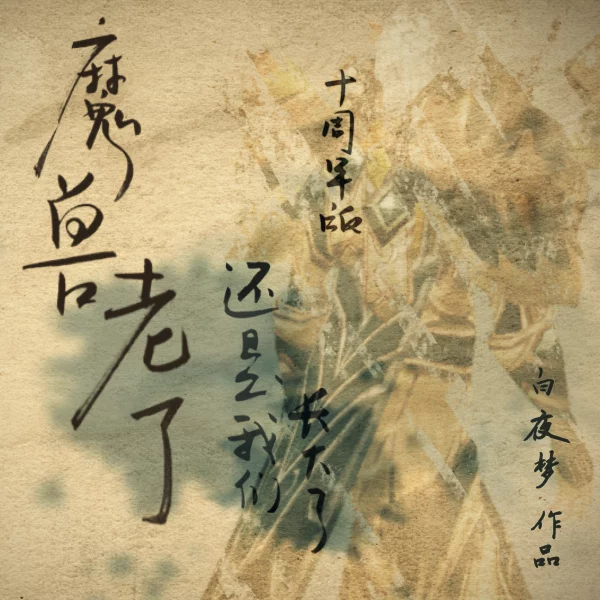 魔兽老了
还是我们
长大了
十周年版
白夜梦
作品